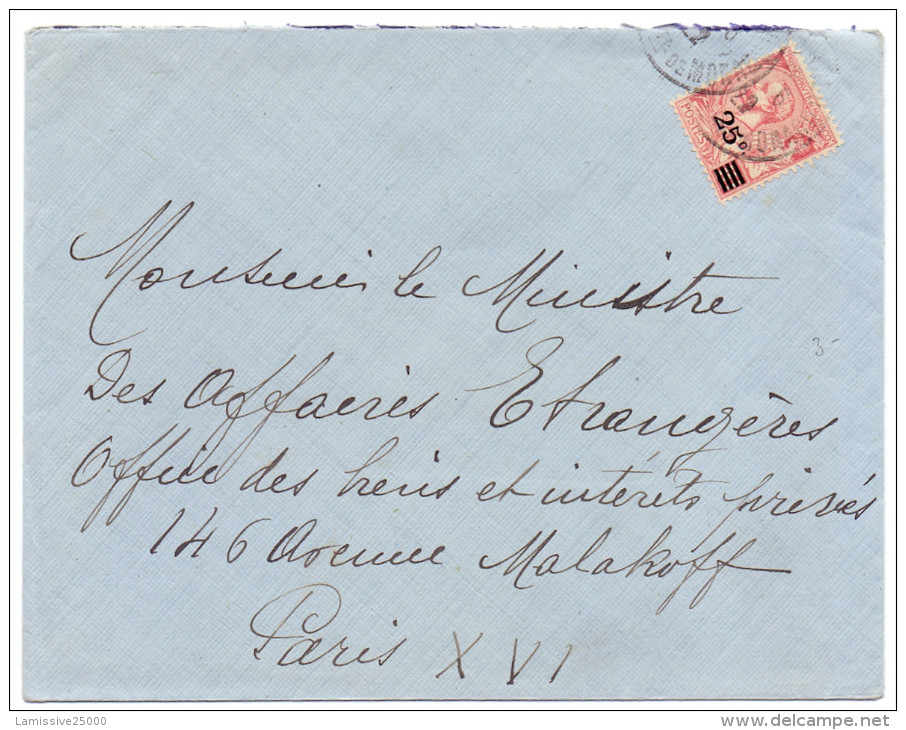 25c.
Monsieur le Ministre
Des Affaires Etrangères
Office des biens et intérêts privés
146 Avenue Malakoff
Paris XVI
3-
Lamissive25000
www.delcampe.net